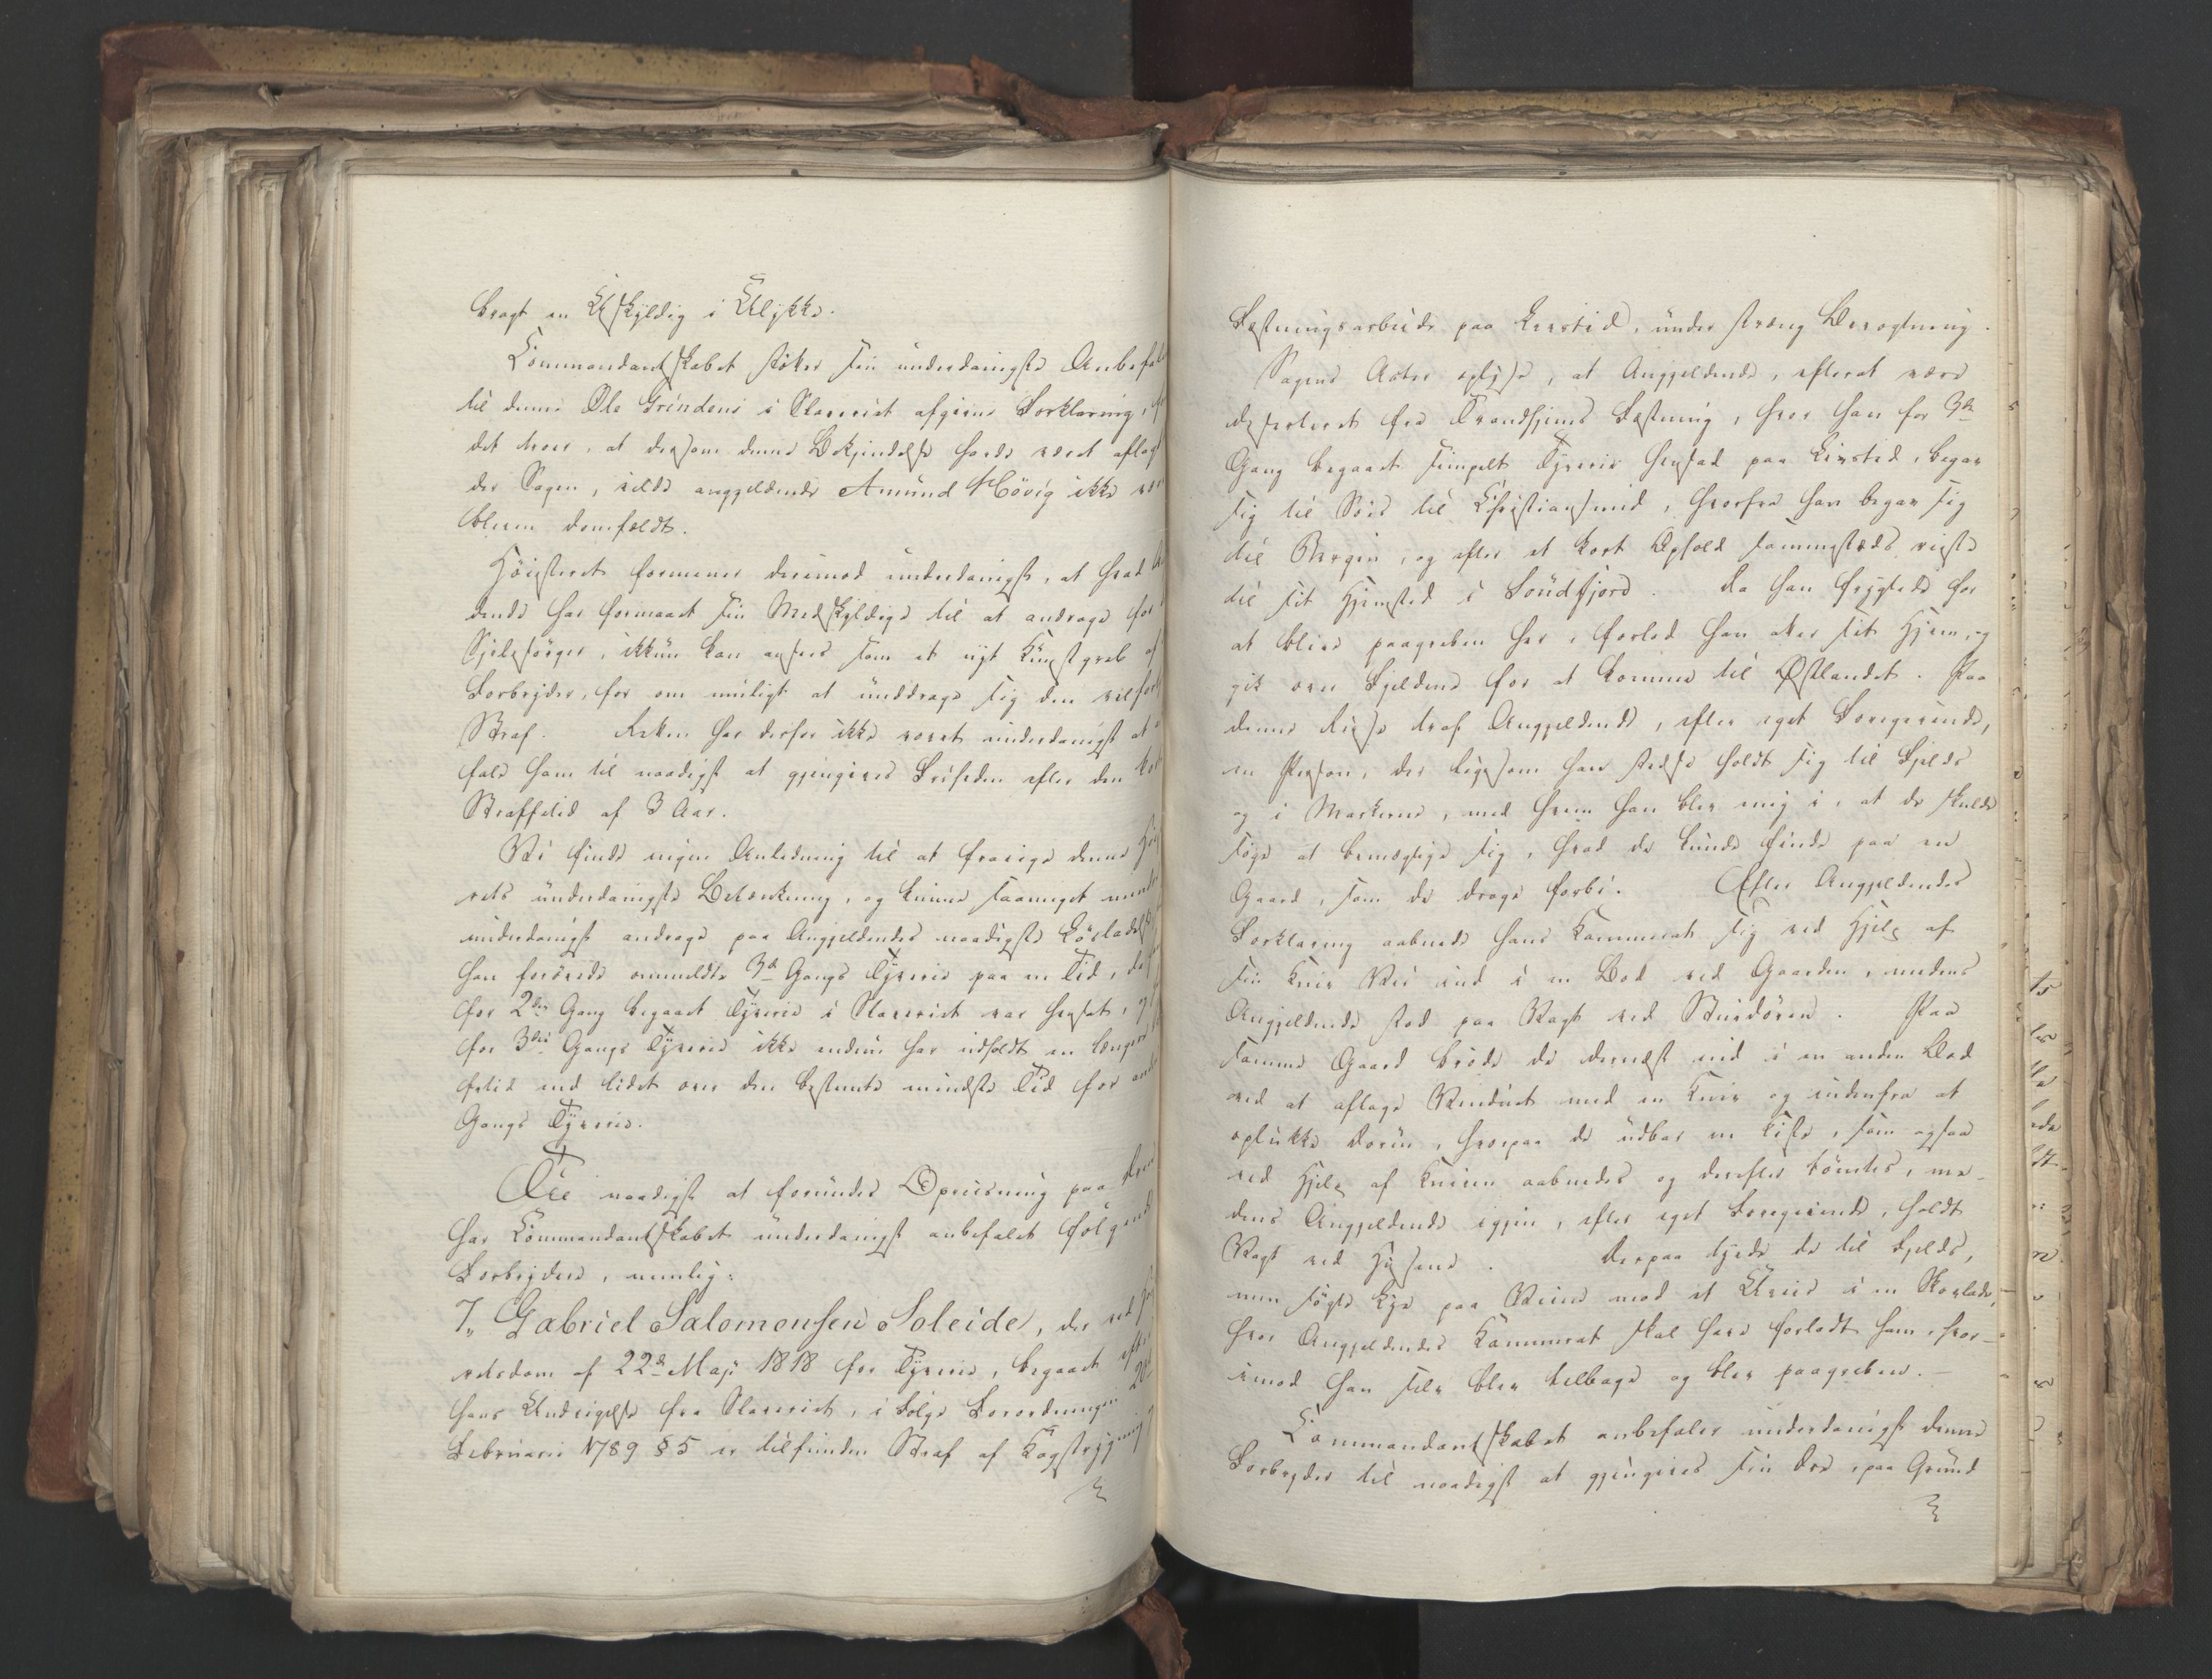 bragt en Uskyldig i Ulykke.
Commandantskabet støtter sin underdanigste Anbefal
til denne Ole Grindens i Slaveriet afgivne Forklaring,
det troer, at dersom denne Bekjendelse havde været aflagt
der Sagen, vilde angjeldende Amund Høvig ikke
bleven domfældt.
Höiesteret formener derimod underdanigst, at hvad
dende har formaaet sin Medskyldige til at andrage for
Sjelesörger, ikkun kan ansees som et nyt Kunstgreb af
Forbryder, for om muligt at unddrage sig den velfort
Straf. Retten har derfor ikke voret underdanigst at
fale ham til naadigst at gjengives Friheden efter den kor
Straffetid af 3 Aar.
Vi finde ingen Anledning til at fravige denne Höi
rets underdanigste Betænkning, og kunne saameget mindre
underdanigst andrage paa Angjeldendes naadigste Lösladelse,
han forövede ommeldte 3die Gangs Tyverie paa en Tid, da
for 2den Gang begaaet Tyverie i Slaveriet var hensat, og
for 3die Gangs Tyverie ikke endnu har udholdt en længere
fetid end lidet over den bestemte mindste Tid for anden
Gangs Tyverie.
Til naadigst at forundes Opreisning paa Æren
har Commandantskabet underdanigst anbefalet fölgende
Forbrydere, nemlig:
7, Gabriel Salomonsen Soleide, der ved Höi
retsdom af 22de Maji 1818 for Tyverie, begaaet efter
hans Undvigelse fra Slaveriet, i Fölge Forordningen 20de
Februarii 1789 § 5 er tilfunden Straf af Kagstrygning,
Fæstningsarbeide paa Livstid, under streng Bevogtning.
Sagens Acter oplyse, at Angjeldende, efterat være
deserteret fra Trondhjems Fæstning, hvor han for 3die
Gang begaaet simpelt Tyverie hensad paa Livstid, begav
sig til Söes til Christiansund, hvorfra han begav sig
til Bergen, og efter et kort Ophold sammesteds reiste
til sit Hjemsted i Söndfjord. Da han frygtede for
at blive paagreben her, forlod han atter sit Hjem, og
gik over Fjeldene for at komme til Østlandet. Paa
denne Reise traf Angjeldende, efter eget Foregivende,
en Person, der ligesom han stedse holdt sig til Fjelds
og i Markerne, med hvem han blev enig i, at de skulde
söge at bemægtige sig, hvad de kunde finde paa en
Gaard, som de droge forbi. Efter Angjeldendes
Forklaring aabnede hans Kammerat sig ved Hjelp af
sin Kniv Vei ind i en Bod ved Gaarden, medens
Angjeldende stod paa Vagt ved Stuedören. Paa
samme Gaard bröde de dernæst ind i en anden Bod
ved at aftage Vinduet med en Kniv og indenfra at
oplukke Doren, hvorpaa de udbar en Kiste, som ogsaa
ved Hjelp af Kniven aabnedes og derefter tömtes, me-
dens Angjeldende igjen, efter eget Foregivende, holdt
Vagt ved Husene. Derpaa tyede de til Fjelds,
men sögte Lye paa Veien mod et Uveir i en Skovlade,
hvor Angjeldendes Kammerat skal have forladt ham, hvor-
imod han selv blev tilbage og blev paagreben.-
Commandantskabet anbefaler underdanigst denne
Forbryder til naadigst at gjengives sin Ære, paa Grund